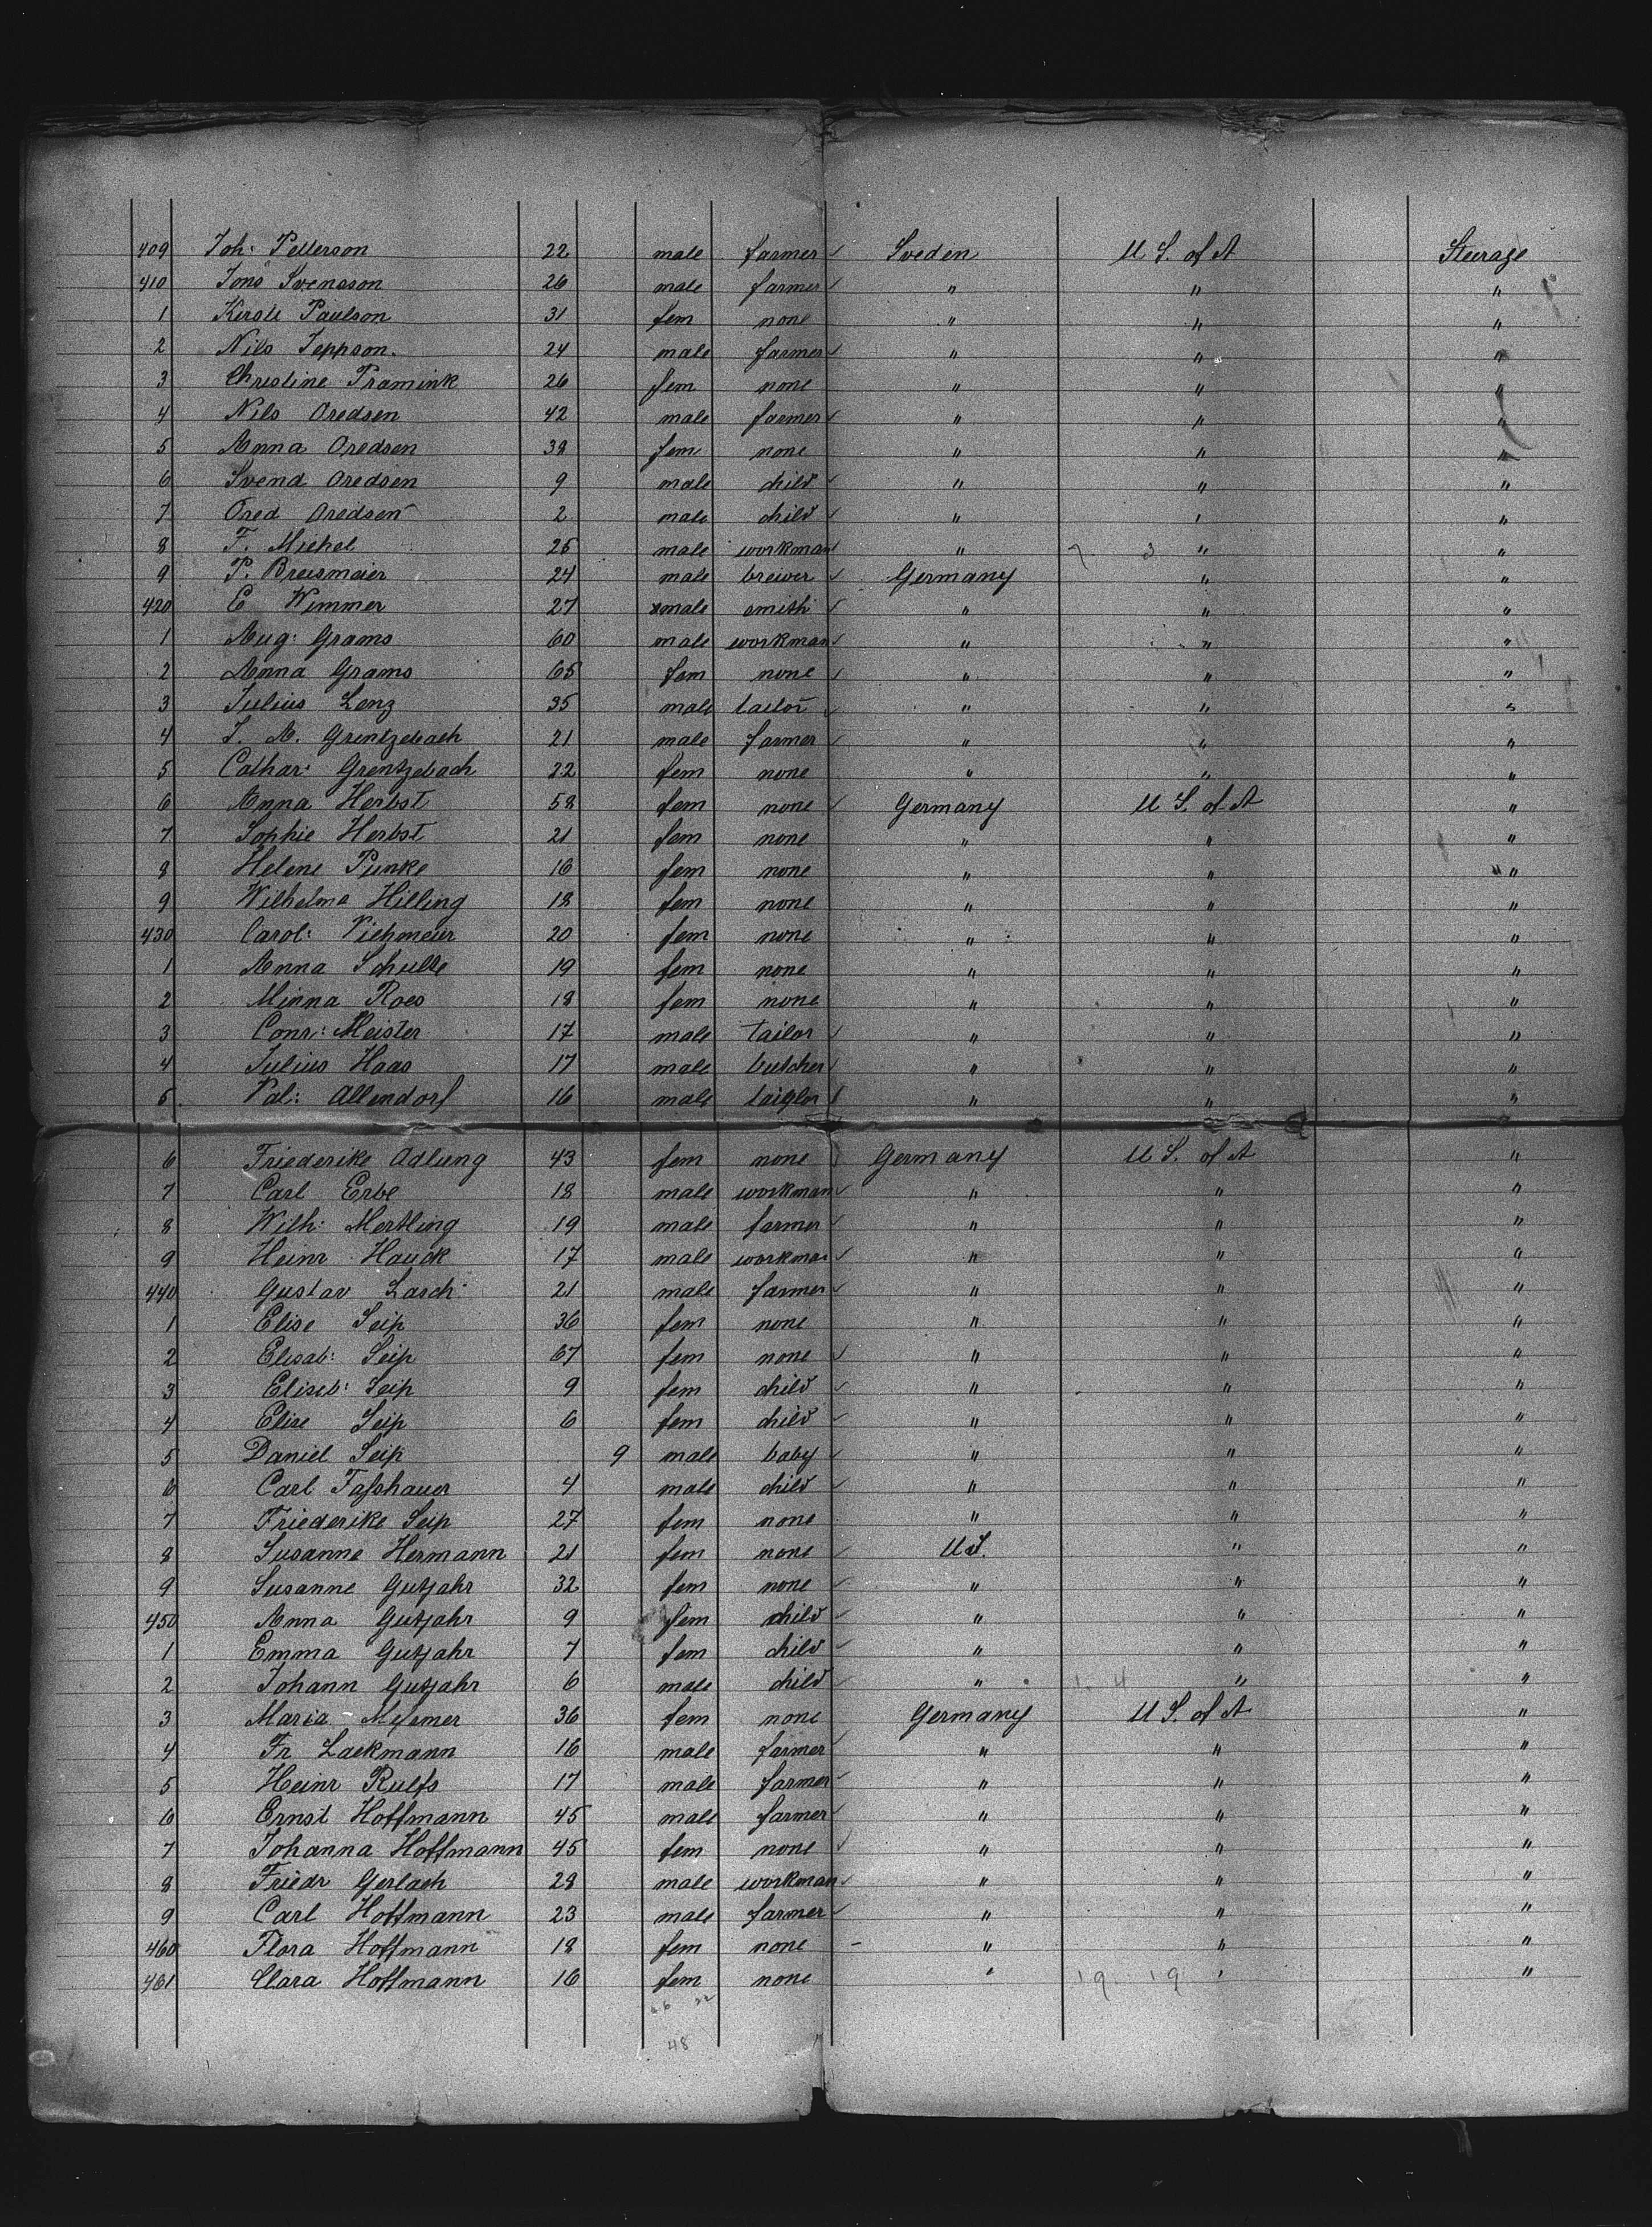 409 Joh: Petterson 22 male farmer Sveden U S. of A Steerage
410 Jons Svensson 26 male farmer " " "
1 Kerste Paulson 31 fem none " " "
2 Nils Jeppson. 24 male farmer " " "
3 Christine Pramink 26 fem none " " "
4 Nils Oredsen 42 male farmer " " "
5 Anna Oredsen 38 fem none " " "
6 Svend Oredsen 9 male child " " "
7 Ored Oredsen 2 male child " " "
8 F. Michel 25 male workman " 7 3 " "
9 P. Breismaier 24 male breiver Germany " "
420 E Wimmer 27 male smith " " "
1 Aug: Grams 60 male workman " " "
2 Anna Grams 65 fem none " " "
3 Julius Lenz 35 male tailor " " "
4 J. A. Grentzebach 21 male farmer " " "
5 Cathar: Grentzebach 22 fem none " " "
6 Anna Herbst 58 fem none Germany U S. of A "
7 Sophie Herbst 21 fem none " " "
8 Helene Punke 16 fem none " " "
9 Wilhelme Hilling 18 fem none " " "
430 Carol: Viehmeier 20 fem none " " "
1 Anna Schulte 19 fem none " " "
2 Minna Roes 18 fem none " " "
3 Conr: Meister 17 male tailor " " "
4 Julius Haas 17 male butcher " " "
5 Val: Allendorf 16 male " " "
6 Friederike Adlung 43 fem none Germany U S. of A "
7 Carl Erbe 18 male workman " " "
8 Wilh: Mertling 19 male farmer " " "
9 Heinr Hauck 17 male workman " " "
440 Gustav Lasch 21 male farmer " " "
1 Elise Seip 36 fem none " " "
2 Elisab: Seip 67 fem none " " "
3 Eliseb: Seip 9 fem child " " "
4 Elise Seip 6 fem child " " "
5 Daniel Seip 9 male baby " " "
6 Carl Faßhauer 4 male child " " "
7 Friederike Seip 27 fem none " " "
8 Susanne Hermann 21 fem none U.S. " "
9 Susanne Gutjahr 32 fem none " " "
450 Anna Gutjahr 9 fem child " " "
1 Emma Gutjahr 7 fem child " " "
2 Johann Gutjahr 6 male child " 1 4 " "
3 Maria Meßmer 36 fem none Germany U S. of A "
4 Fr Lackmann 16 male farmer " " "
5 Heinr Rulfs 17 male farmer " " "
6 Ernst Hoffmann 45 male farmer " " "
7 Johanna Hoffmann 45 fem none " " "
8 Friedr Gerlach 28 male workman " " "
9 Carl Hoffmann 23 male farmer " " "
460 Flora Hoffmann 18 fem none " " "
461 Clara Hoffmann 16 fem none " 19 19 " "
26 22
48